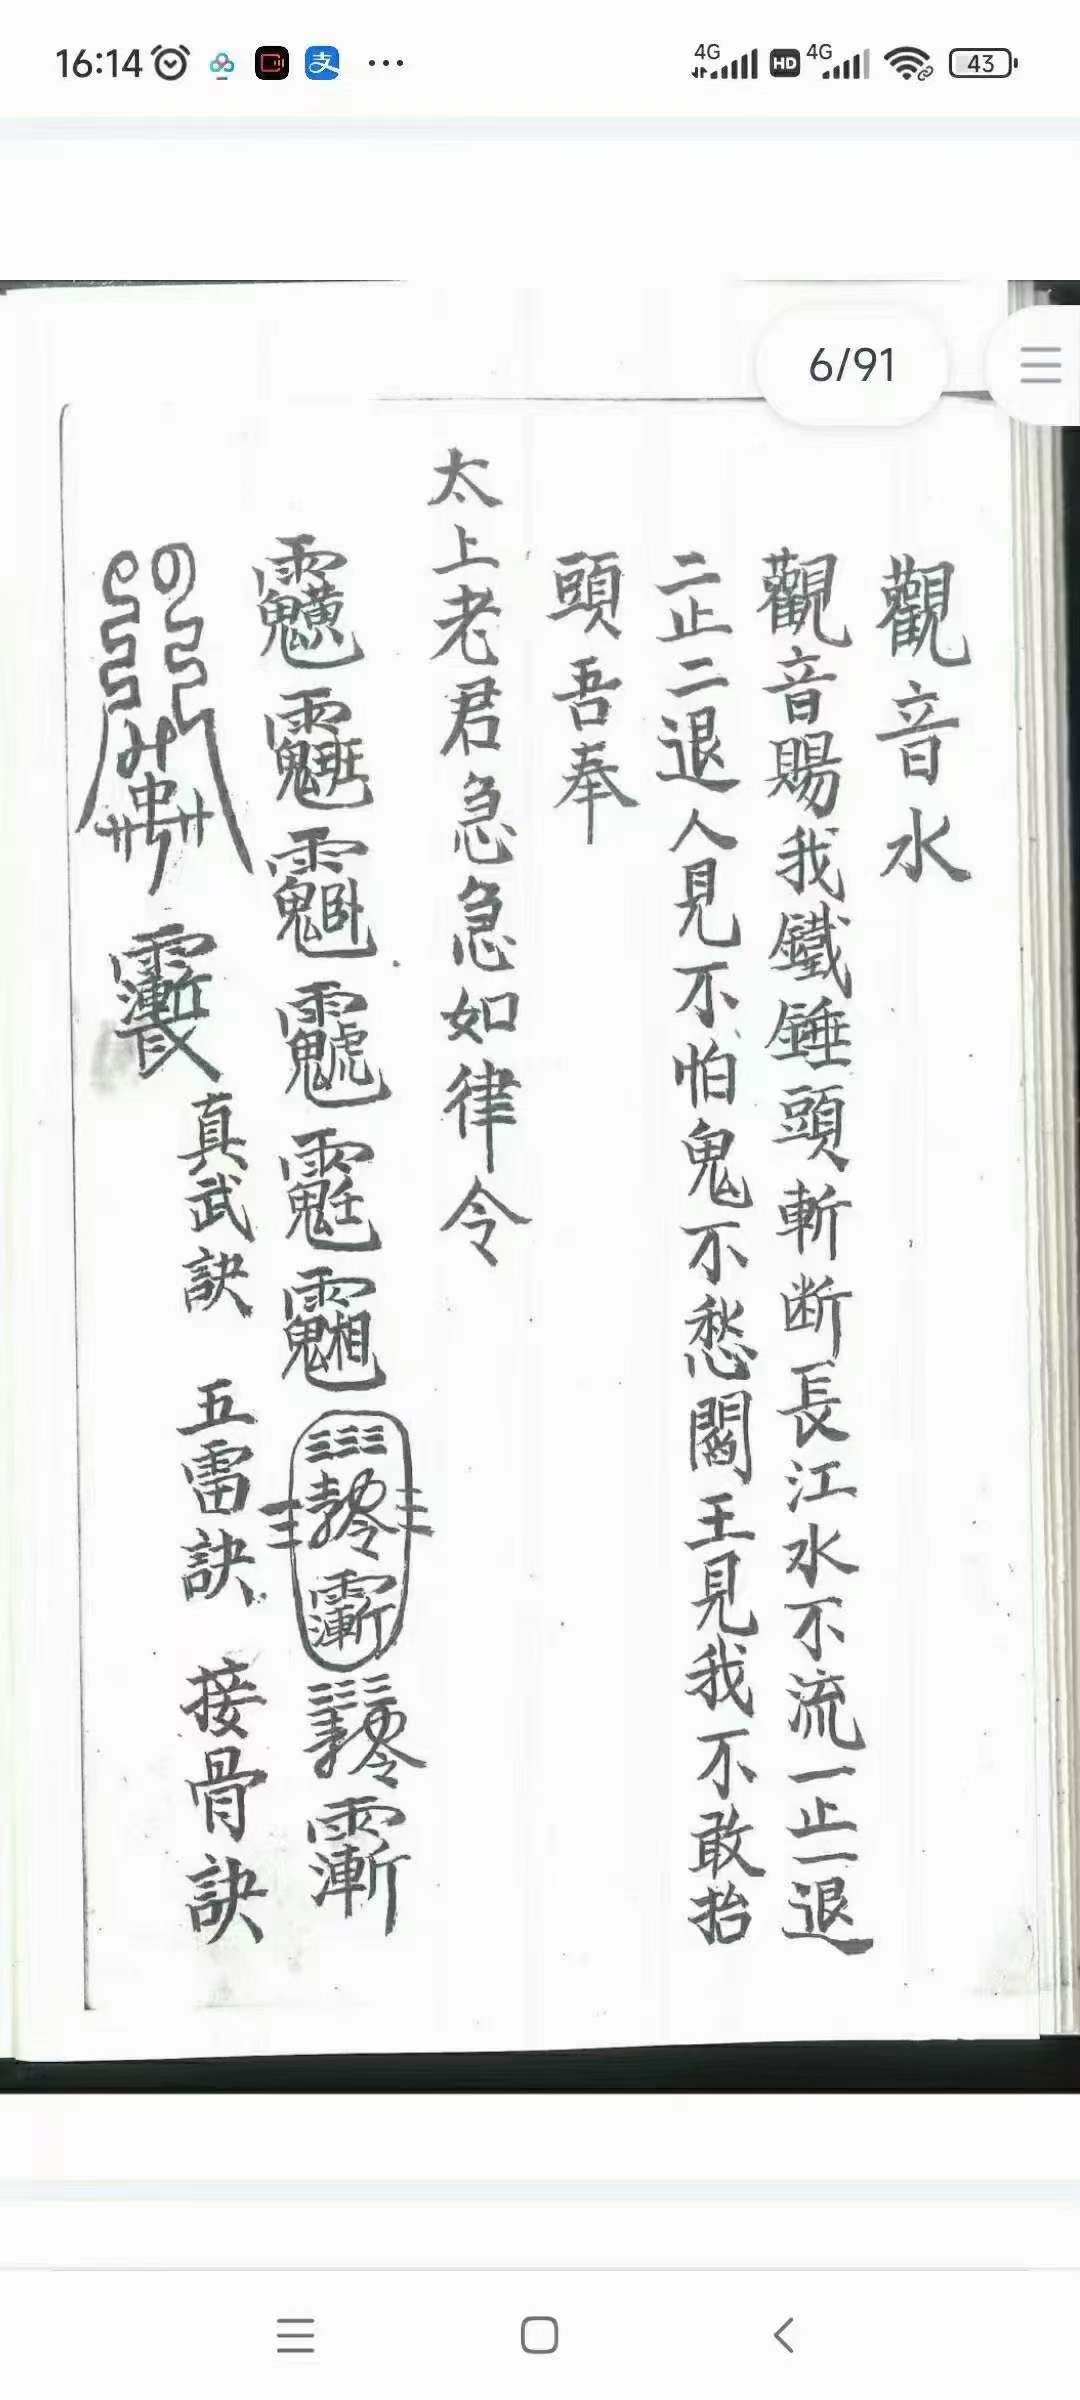 16:14
4G HD 4G 43
6/91
觀音水
觀音賜我鐵錘頭斬断長江水不流一止一退
二止二退人見不怕鬼不愁閻王見我不敢抬
頭吾奉
太上老君急急如律令
真武訣 五雷訣 接骨訣